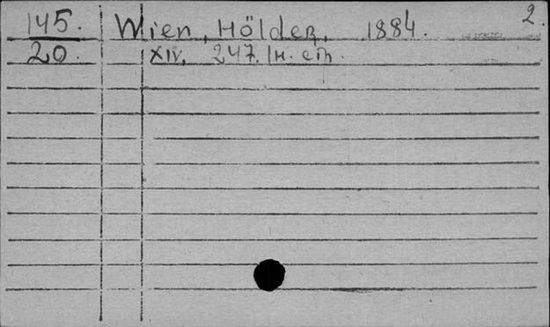 145. Wien, Hölder, 1884. 2.
20. XIV, 247. IH. cm.